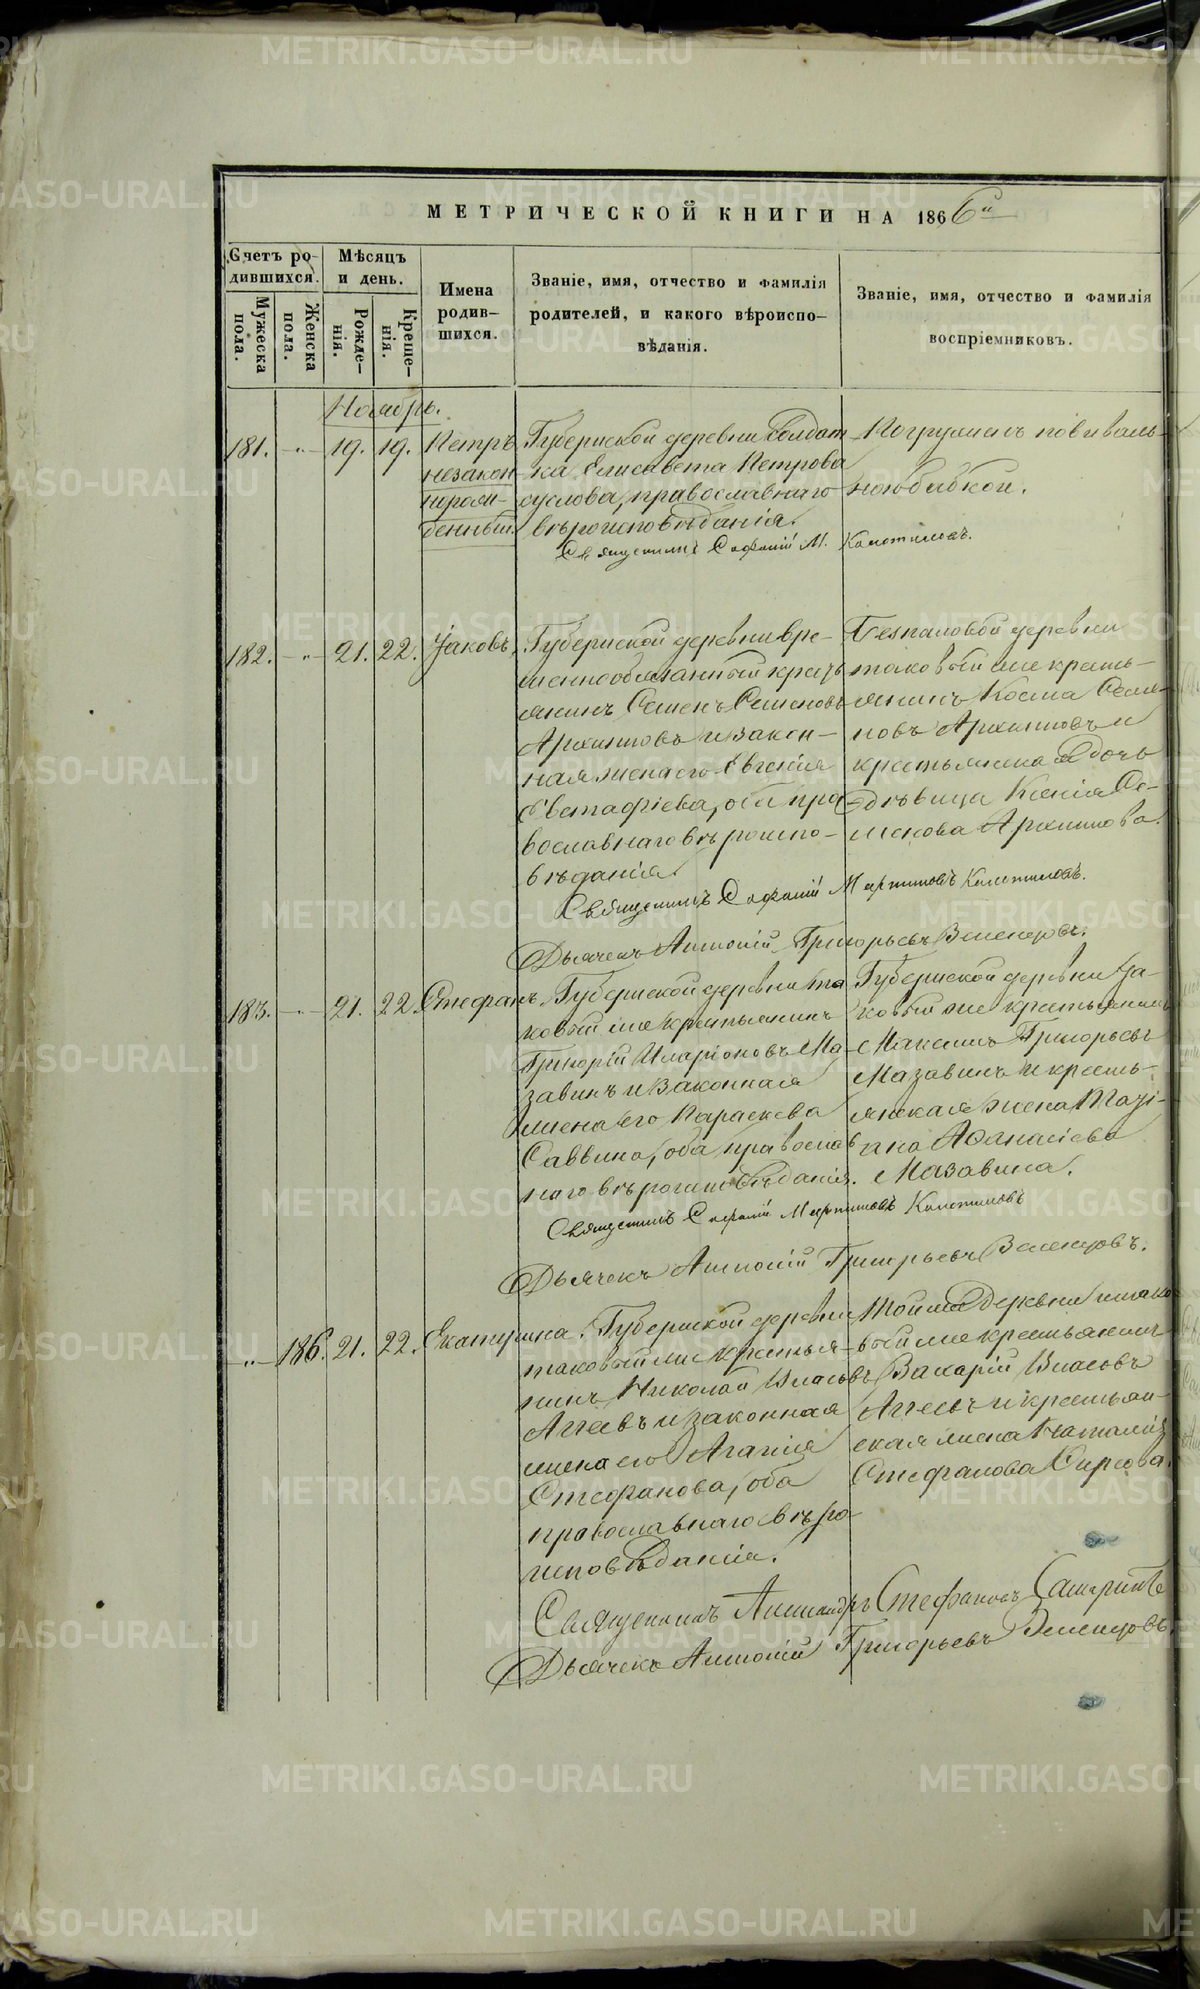 МЕТРИЧЕСКОЙ КНИГИ НА 1866й
Счетъ родившихся.
Мѣсяцъ и день.
Имена родив-
шихся.
Званіе, имя, отчество и фамилія
родителей, и какого вѣроиспо-
вѣданія.
Званіе, имя, отчество и фамилія
воспріемниковъ.
Мужеска пола.
Женска пола.
Рожде-
нія.
Креще-
нія.
Ноябрь.
181. -"- 19. 19. Петръ
незакон-
норож-
денный.
Губернской деревни солдат-
ка Елисавета Петрова
суслова, православнаго
вѣроисповѣданія.
Погруженъ повиваль-
ною бабкой.
Священникъ Софоній М.
182. -"- 21. 22. Іаковъ,
Губернской деревни вре-
меннообязанный кресть
янинъ Семенъ Семеновъ
Архиповъ и закон-
ная жена его Евгенія
Евстафіева, оба пра-
вославнаго вѣроиспо-
вѣданія.
деревни
таковый же кресть-
янинъ Косма Семе-
новъ Архиповъ и
крестьянска дочь
дѣвица Ксенія Се-
менова Архипова.
Священникъ Софоній Мартиновъ
Дьячекъ Антоній Григорьевъ Земенцовъ.
183. -"- 21. 22. Стефанъ.
Губернской деревни та
ковый же крестьянинъ
Григорій Иларіоновъ Ма-
завинъ и законная
жена его Параскева
Саввина, оба православ
наго вѣроисповѣданія.
Губернской деревни та-
ковый же крестьянинъ
Максимъ Григорьевъ
Мазавинъ и кресть-
янская жена Таті-
ана Афанасіева
Мазавина.
Священникъ Софоній Мартиновъ
Дьячекъ Антоній Григорьевъ Земенцовъ.
-"- 186. 21. 22. Екатерина.
Губернской деревни
таковый же крестья-
нинъ Николай Власовъ
Агеевъ и законная
жена его Агапія
Стефанова, оба
православнаго вѣро
исповѣданія.
Той же деревни и тако-
вый же крестьянинъ
Захарій Власовъ
Агеевъ и крестьян-
ская жена Наталія
Стефанова
Священникъ Александръ Стефановъ
Дьячекъ Антоній Григорьевъ Земенцовъ.
METRIKI.GASO-URAL.RU